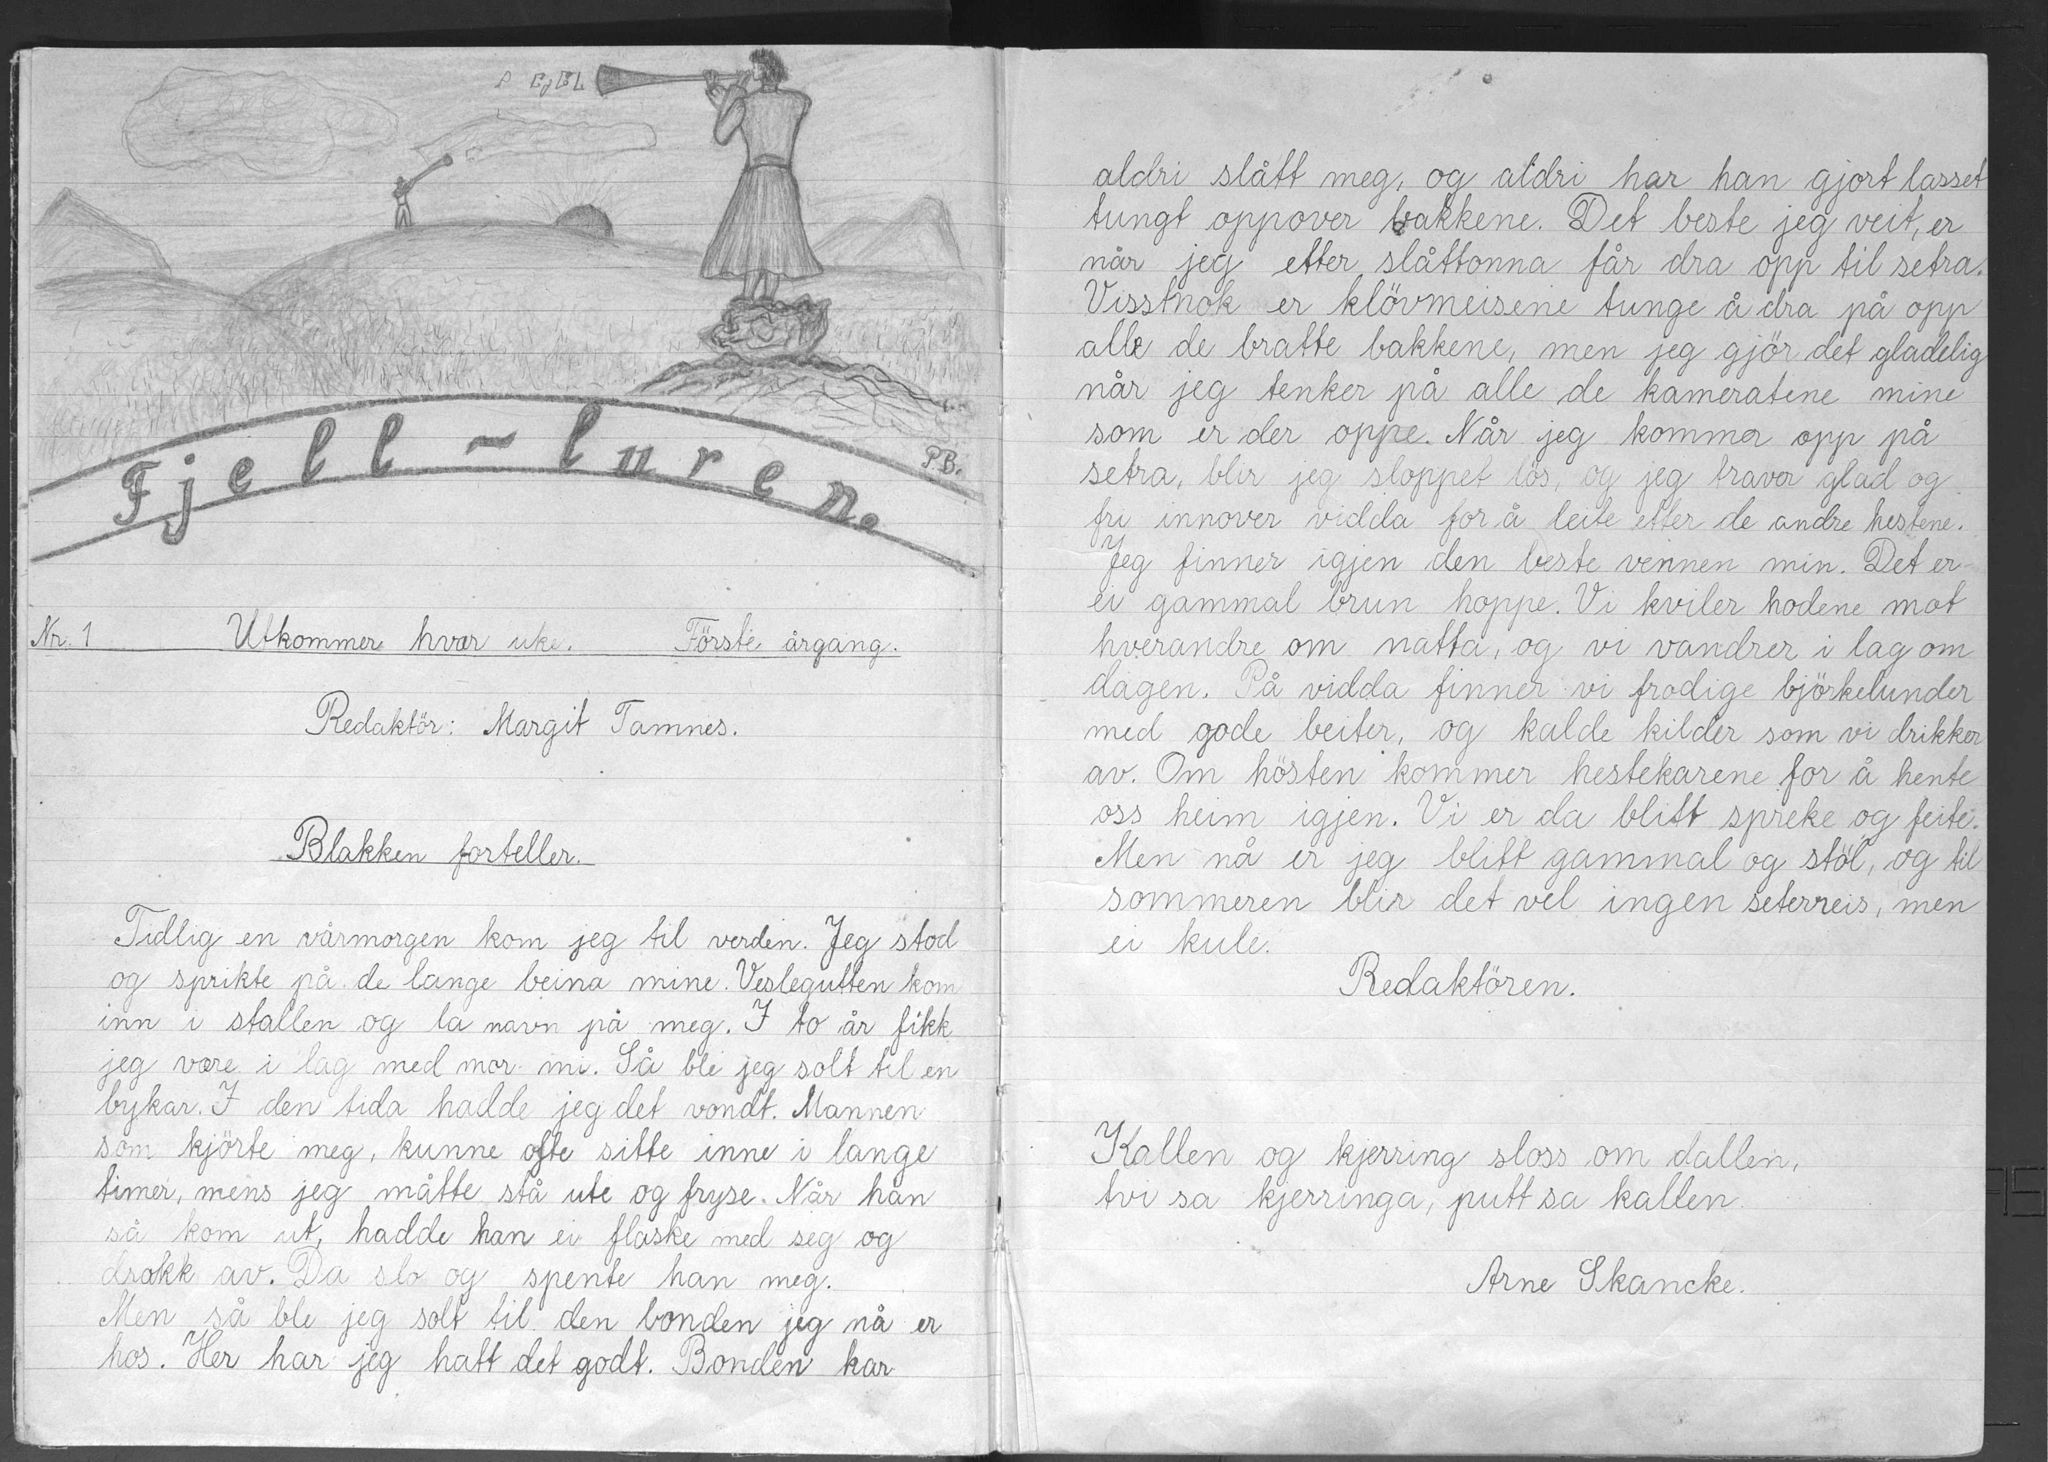 Fjell~luren.
P.B.
Nr. 1 Utkommer hver uke. Förste årgang.
Redaktör: Margit Tamnes.
Blakken forteller.
Tidlig en vårmorgen kom jeg til verden. Jeg stod
og sprikte på de lange beina mine. Veslegutten kom
inn i stallen og la navn på meg. I to år fikk
jeg være i lag med mor mi. Så ble jeg solt til en
bykar. I den tida hadde jeg det vondt. Mannen
som kjörte meg, kunne ofte sitte inne i lange
timer, mens jeg måtte stå ute og fryse. Når han
så kom ut, hadde han ei flaske med seg og
drakk av. Da slo og spente han meg.
Men så ble jeg solt til den bonden jeg nå er
hos. Her har jeg hatt det godt. Bonden har
aldri slått meg, og aldri har han gjort lasset
tungt oppover bakkene. Det beste jeg veit, er
når jeg etter slåttonna får dra opp til setra.
Visstnok er klövmeisene tunge å dra på opp
alle de bratte bakkene, men jeg gjör det gladelig
når jeg tenker på alle de kameratene mine
som er der oppe. Når jeg kommer opp på
setra, blir jeg sloppet lös, og jeg traver glad og
fri innover vidda for å leite etter de andre hestene.
Jeg finner igjen den beste vennen min. Det er
ei gammal brun hoppe. Vi kviler hodene mot
hverandre om natta, og vi vandrer i lag om
dagen. På vidda finner vi frodige björkelunder
med gode beiter, og kalde kilder som vi drikker
av. Om hösten kommer hestekarene for å hente
oss heim igjen. Vi er da blitt spreke og feite.
Men nå er jeg blitt gammal og stöl, og til
sommeren blir det vel ingen seterreis, men
ei kule.
Redaktören.
Kallen og kjerring sloss om dallen,
tvi sa kjerringa, putt sa kallen.
Arne Skancke.